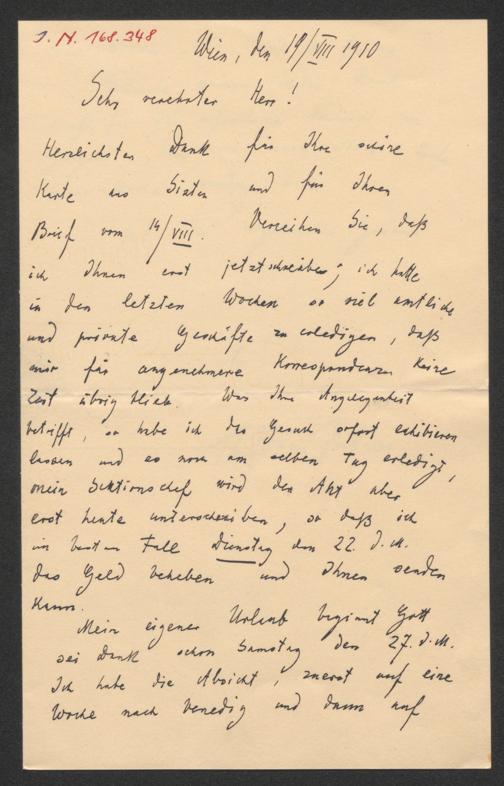 J. N. 168.348
Wien, den 19/VIII 1910
Sehr verehrter Herr!
Herzlichsten Dank für Ihre schöne
Karte aus und für Ihren
Brief vom 14/VIII. Verzeihen Sie, daß
ich Ihnen erst jetzt schreibe; ich hatte
in den letzten Wochen so viel amtliche
und private Geschäfte zu erledigen, daß
mir für angenehmere Korrespondenzen keine
Zeit übrig blieb. Was Ihre Angelegenheit
betrifft, so habe ich das Gesuch sofort exhibieren
lassen und es noch am selben Tag erledigt,
mein Sektionschef wird den Akt aber
erst heute unterschreiben, so daß ich
im besten Fall Dienstag den 22. d. M.
das Geld beheben und Ihnen senden
kann.
Mein eigener Urlaub beginnt Gott
sei Dank schon Samstag den 27. d. M.
Ich habe die Absicht, zuerst auf eine
Woche nach Venedig und dann auf